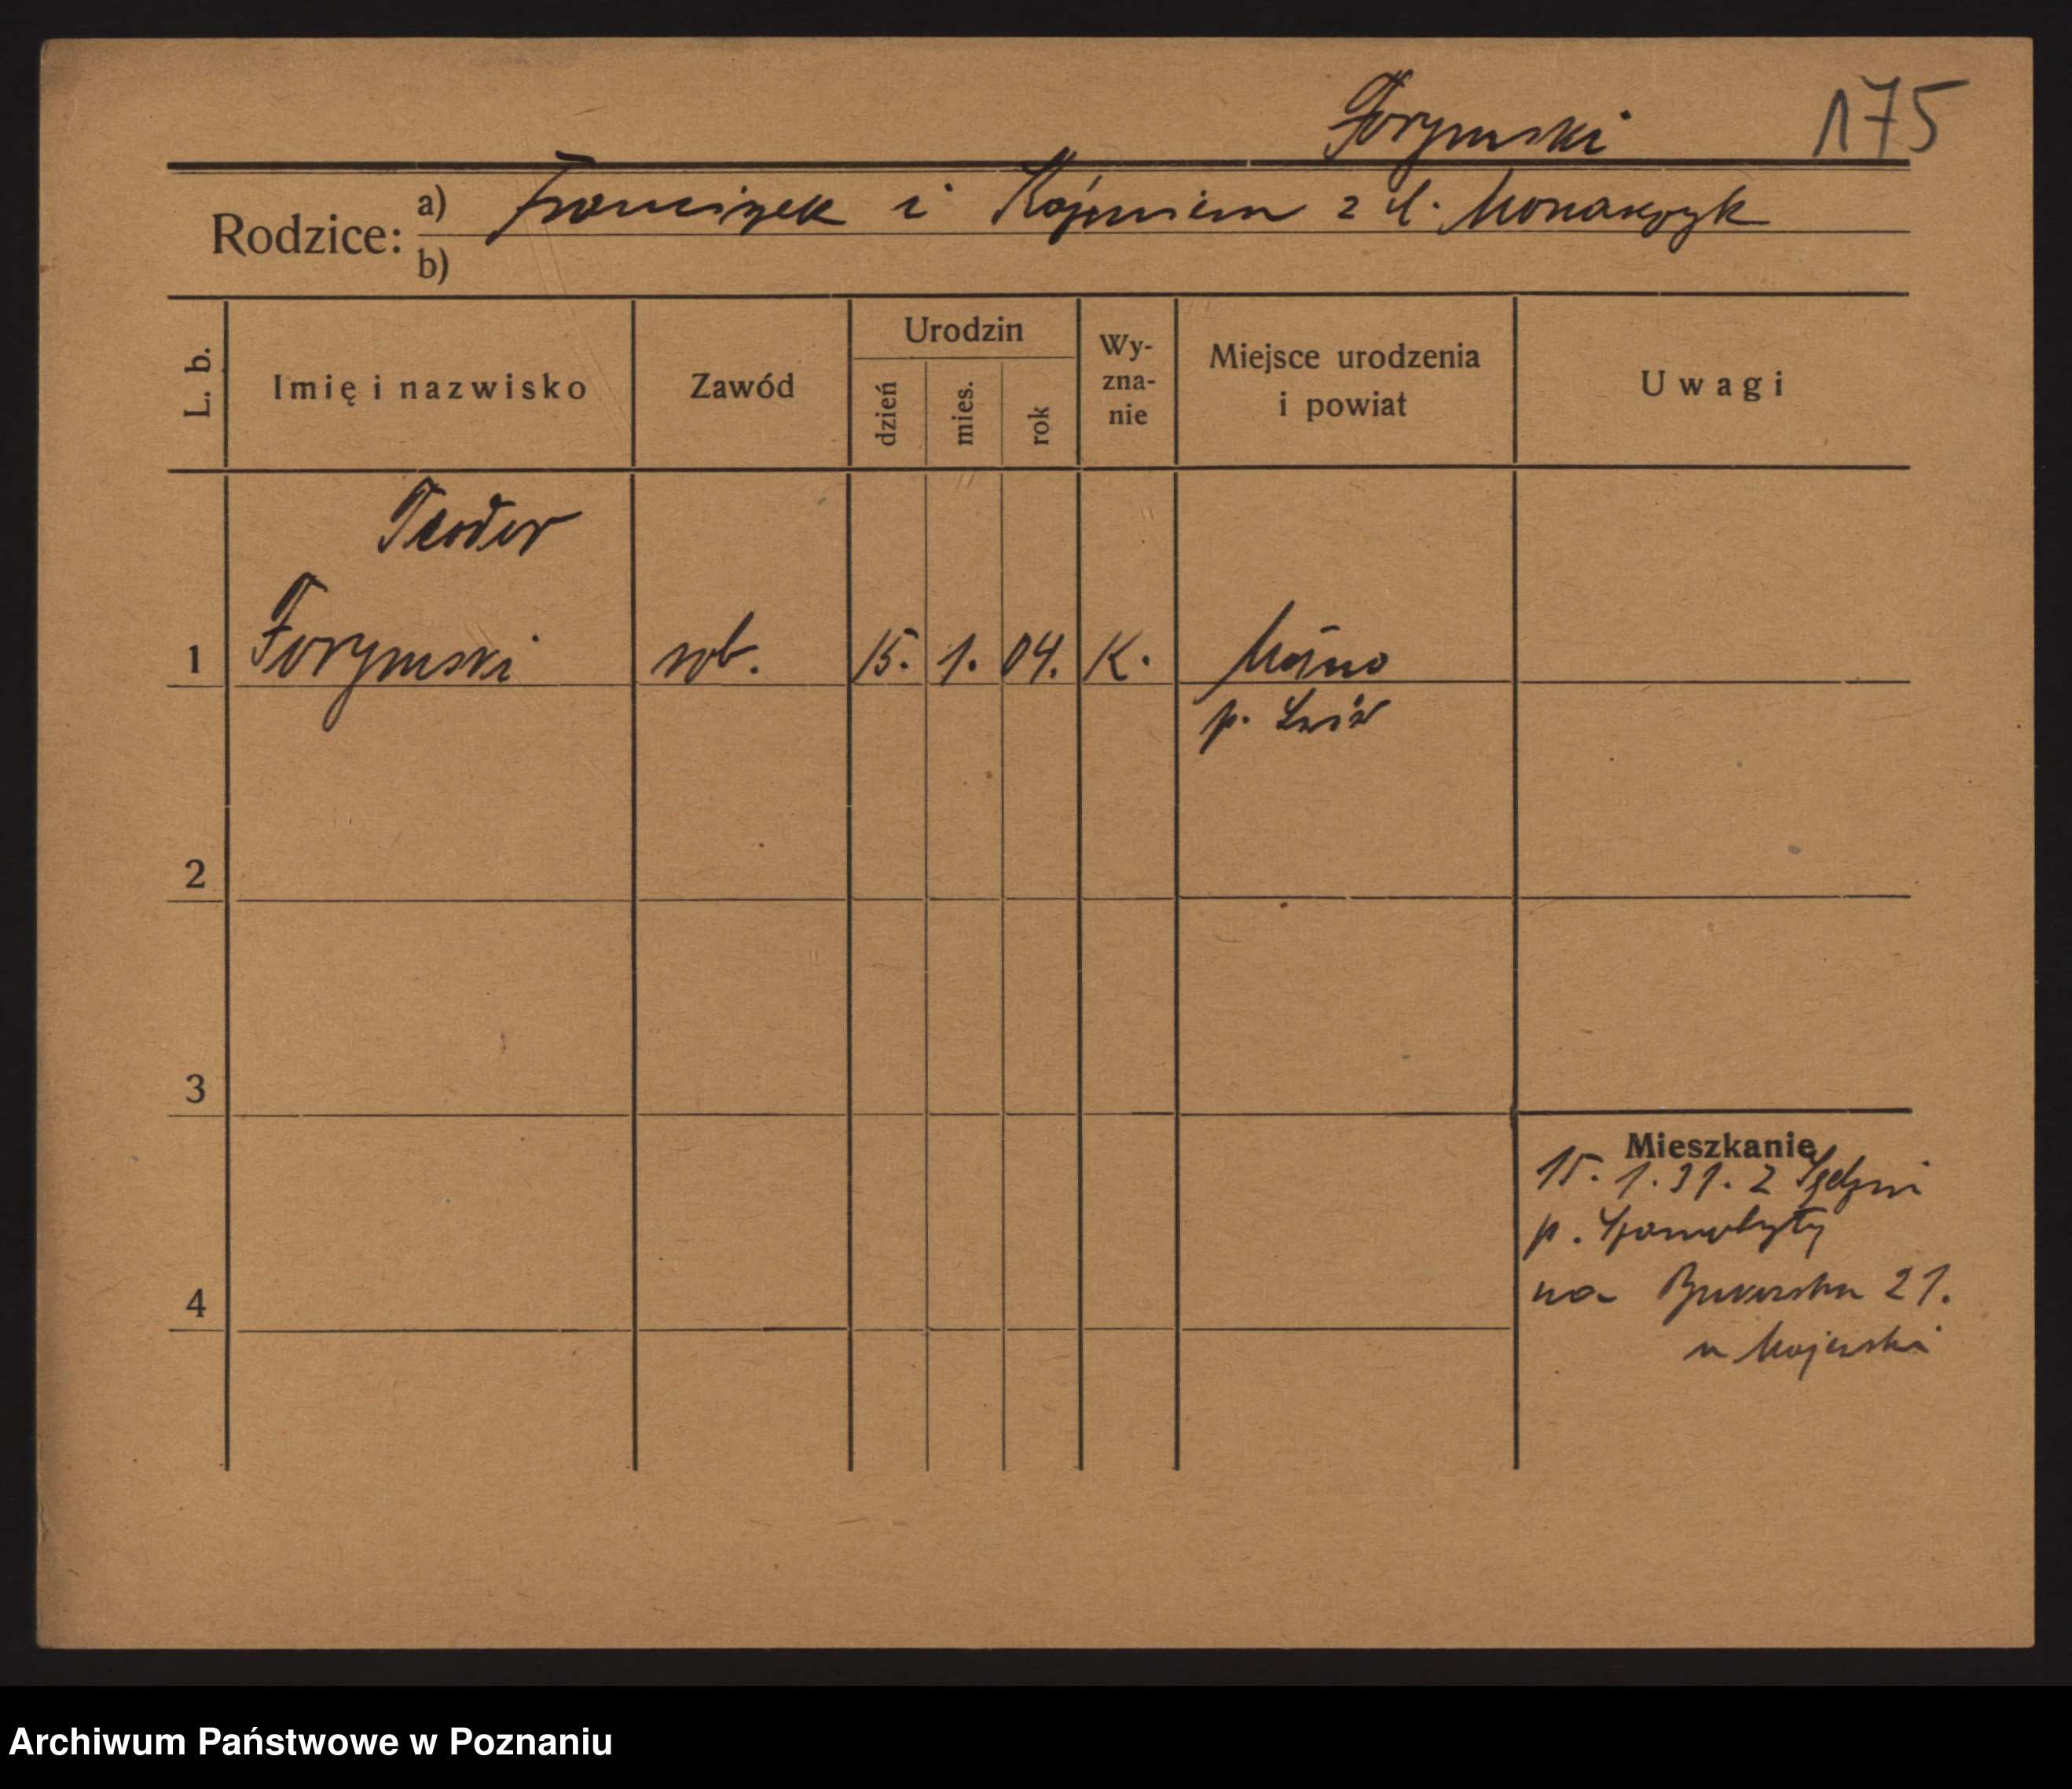 Forymski 175
Rodzice: a) Franciszek i z d.
b)
L. b. Imię i nazwisko Zawód Urodzin dzień mies. rok Wyznanie Miejsce urodzenia i powiat Uwagi
Teodor
1 Forymski rob. 15. 1. 04. K.
p. Lwów
2
3
Mieszkanie
15. 1. 31. z
p.
4 na Bukowska 21.
u
Archiwum Państwowe w Poznaniu